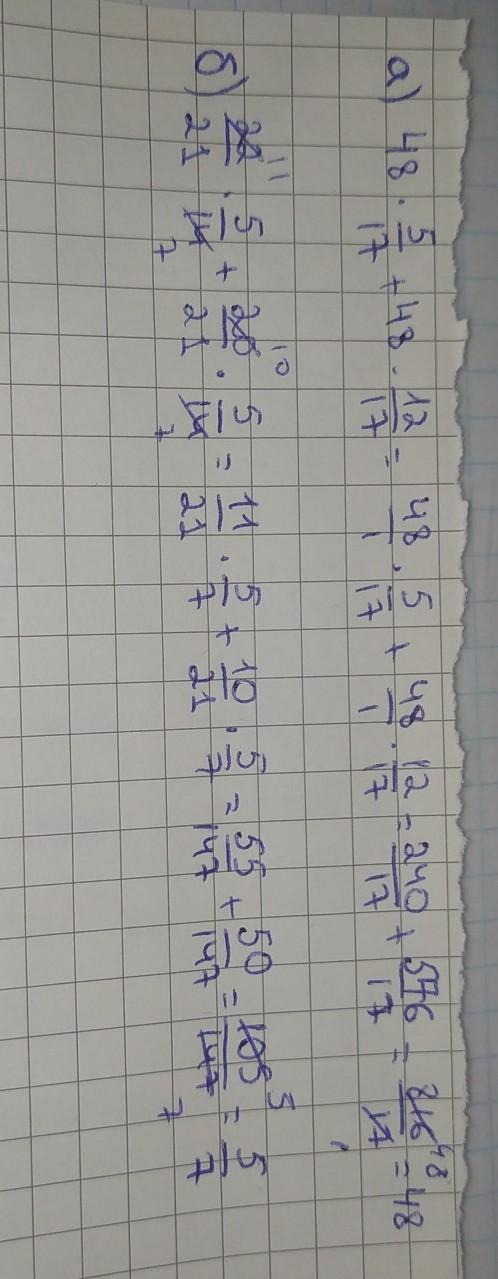 а) 48 · 5/17 + 48 · 12/17 = 48/1 · 5/17 + 48/1 · 12/17 = 240/17 + 576/17 = 816/17 48 = 48
б) 22/21 11 · 5/14 7 + 20/21 10 · 5/14 7 = 11/21 · 5/7 + 10/21 · 5/7 = 55/147 + 50/147 = 105/147 5 7 = 5/7